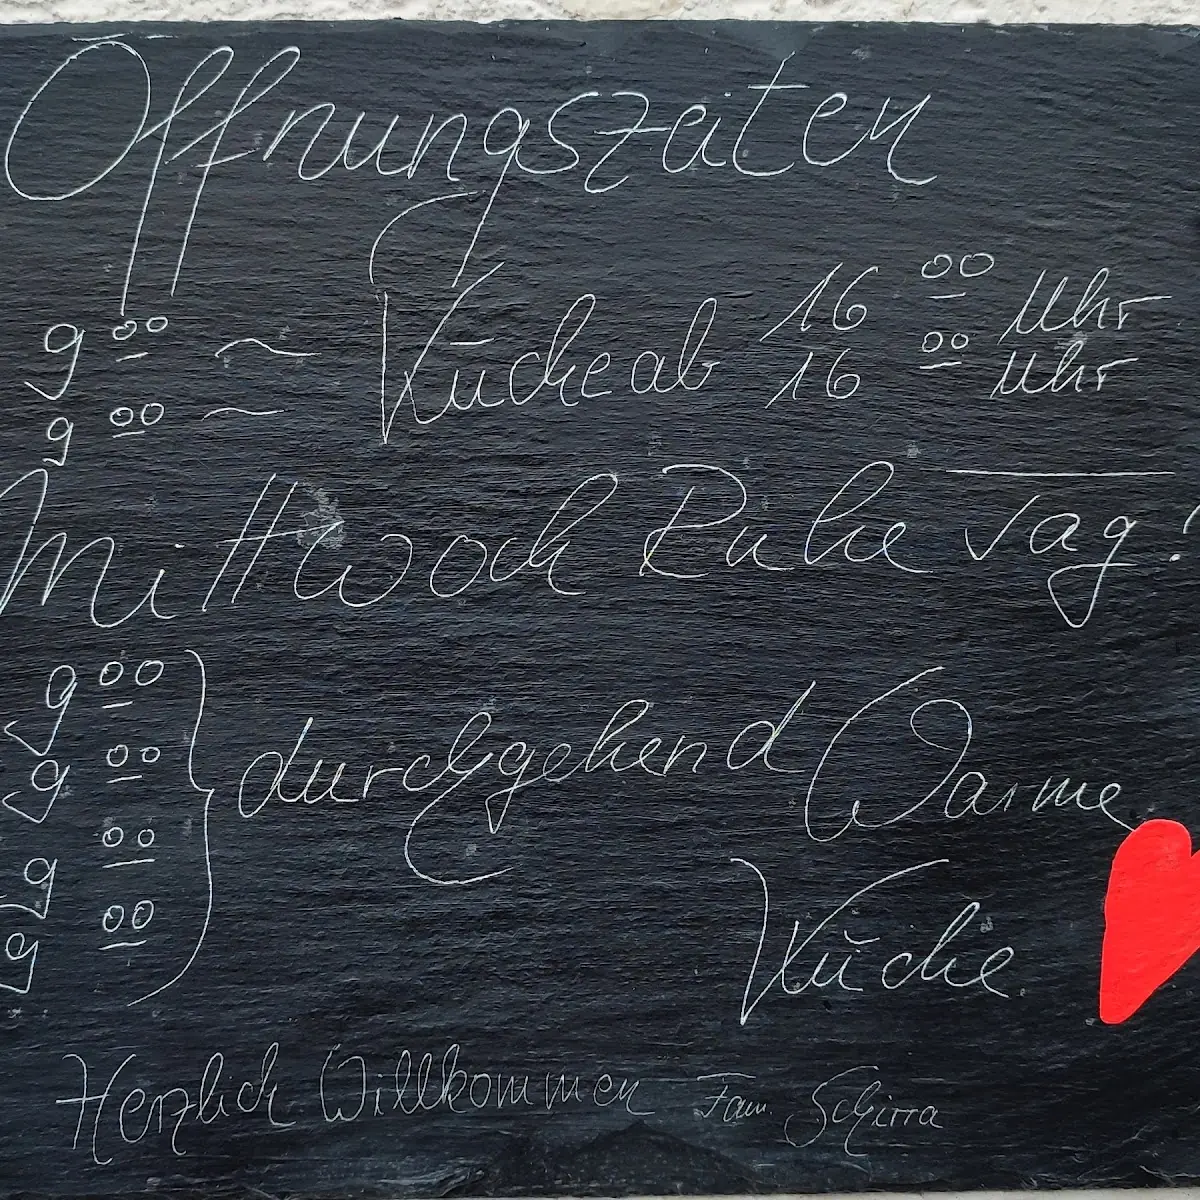 Öffnungszeiten
9 00 ~ Küche ab 16 00 Uhr
9 00 ~ 16 00 Uhr
Mittwoch Ruhe Tag!
9 00
9 00 durchgehend Warme
9 00 Küche
9 00
Herzlich Willkommen Fam. Schirra